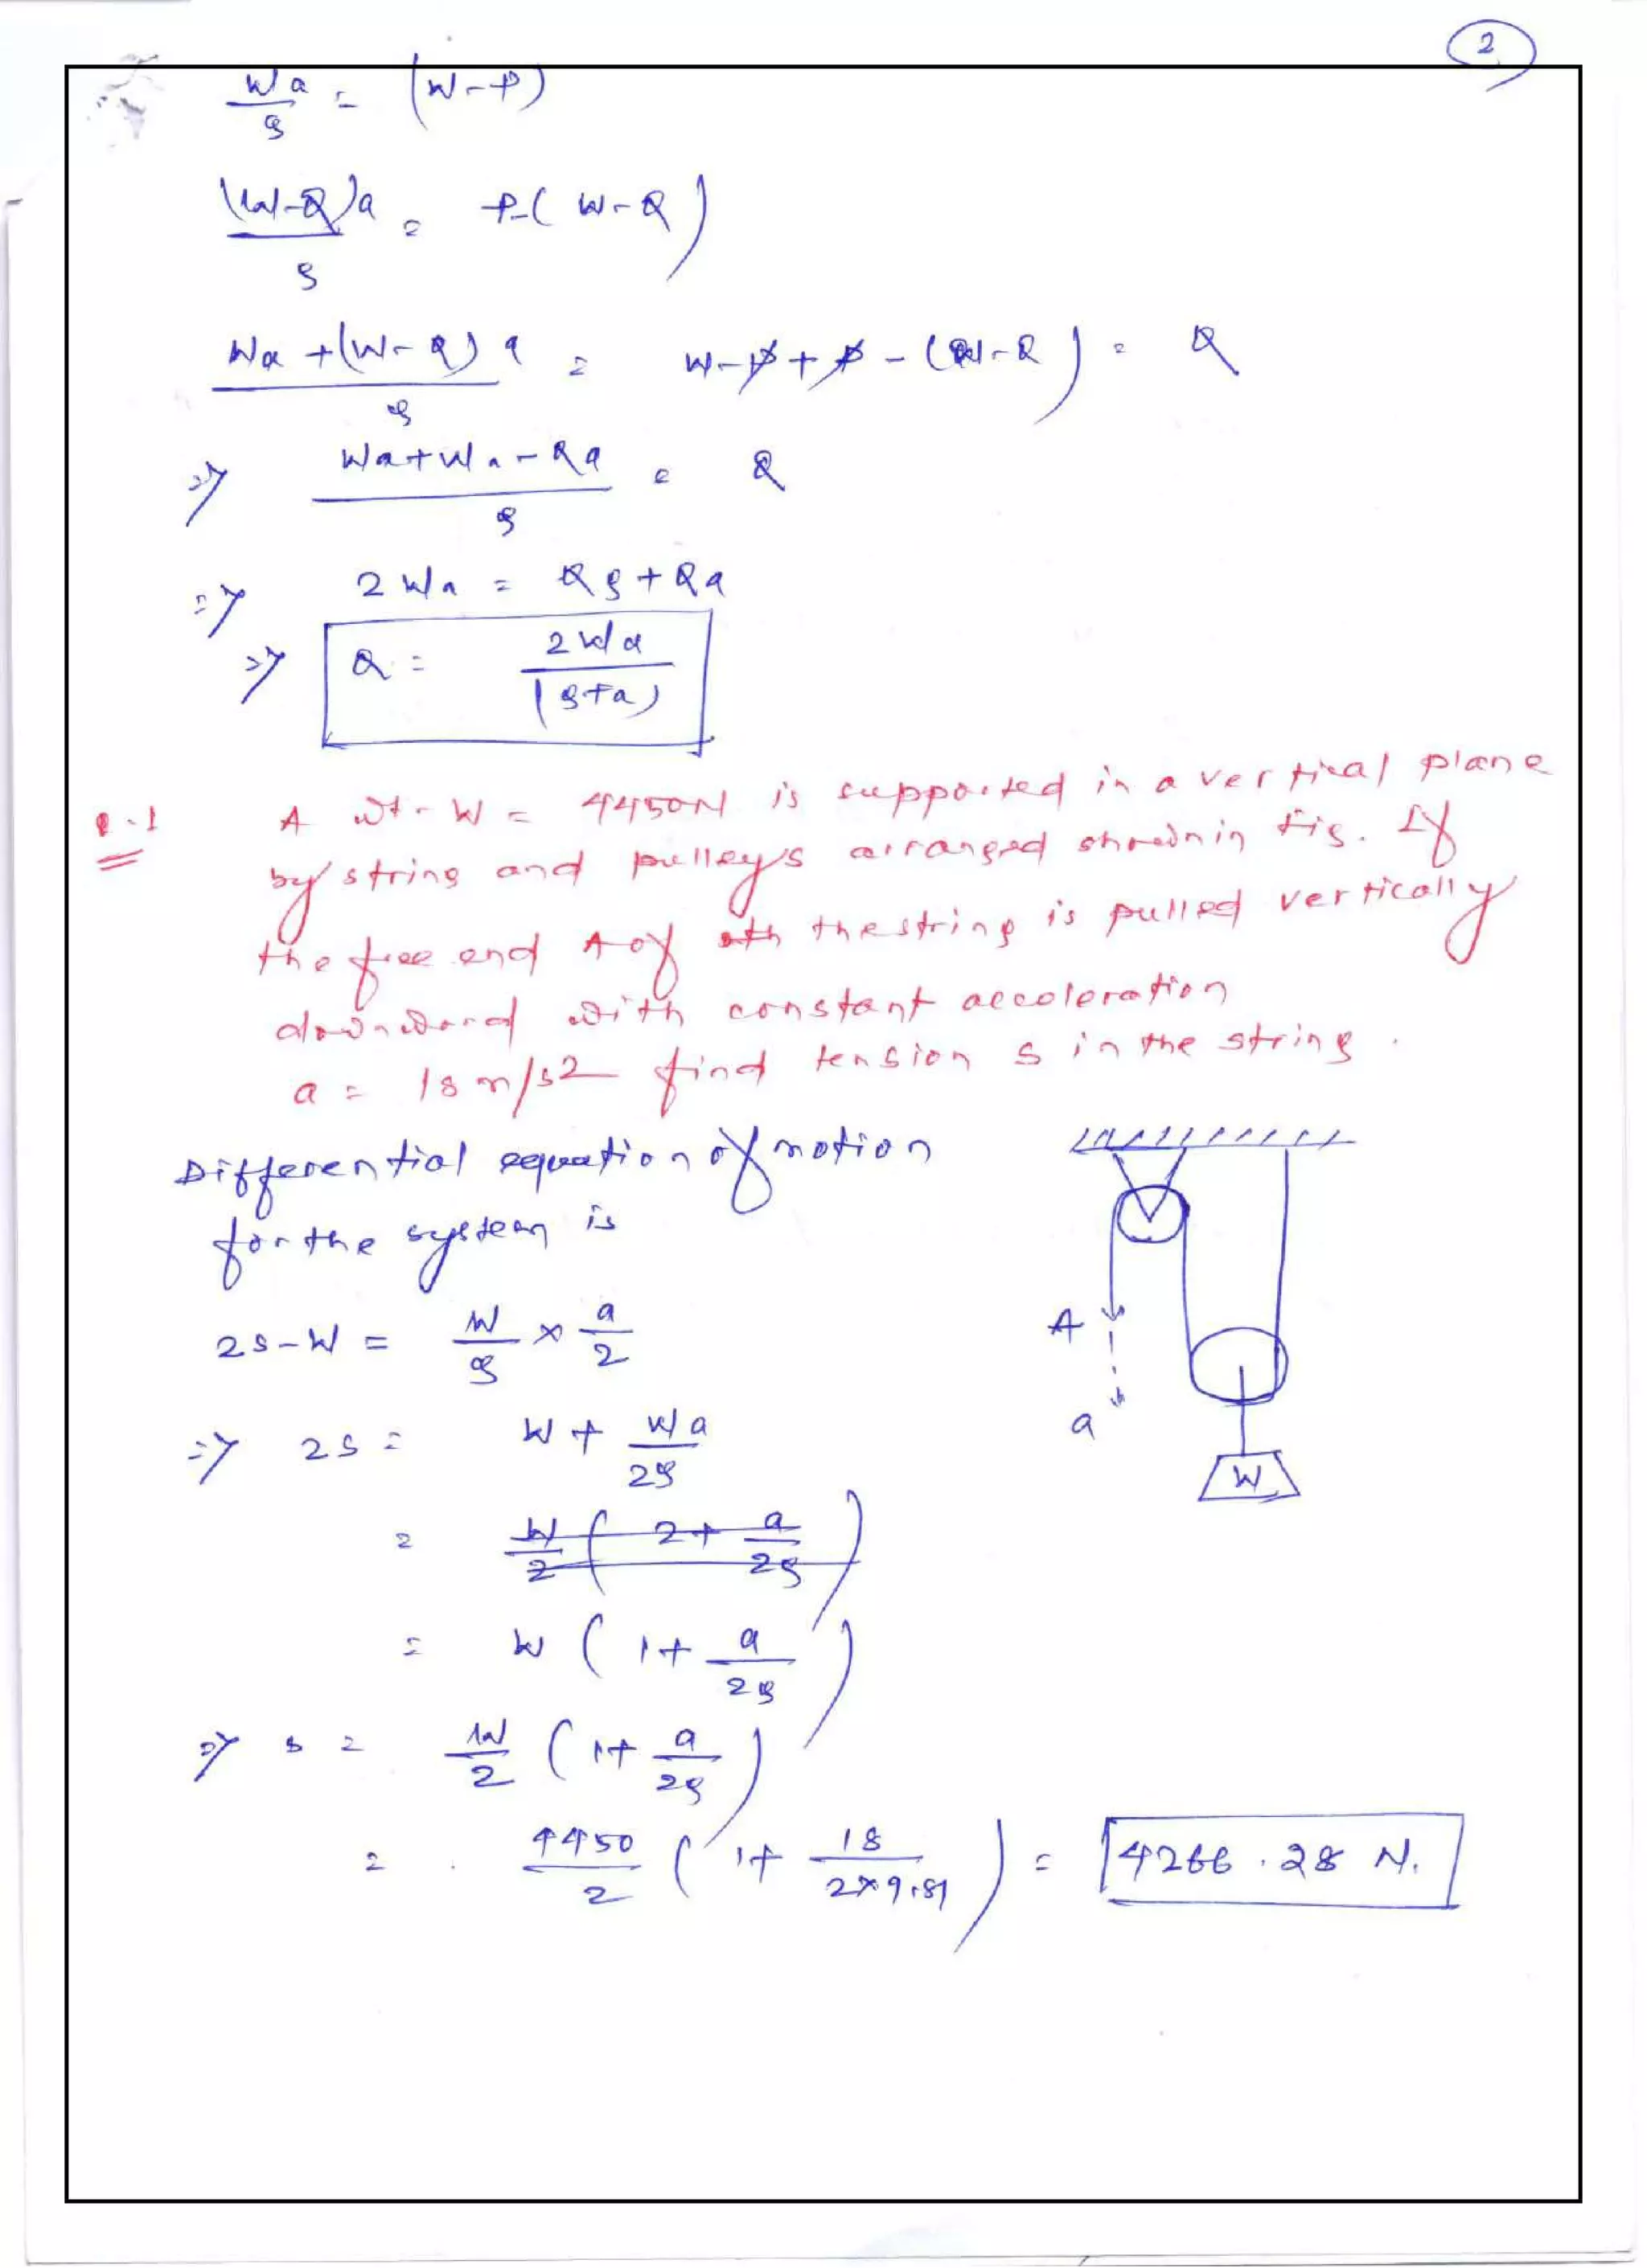 2
Wa/g = (W-P)
(W-Q)a/g = P-(W-Q)
Wa+(W-Q)a/g = W-P+P-(W-Q) = Q
=> Wa+Wa-Qa/g = Q
=> 2Wa = Qg+Qa
=> Q = 2Wa/(g+a)
Q.1 A wt. W = 4450N is supported in a vertical plane
by string and pulleys arranged shown in fig. If
the free end A of the string is pulled vertically
downward with constant acceleration
a = 18 m/s2 find tension S in the string.
Differential equation of motion
for the system is
2S-W = W/g × a/2
=> 2S = W + Wa/2g
= W/2 (2+ a/2g)
= W (1+ a/2g)
=> S = W/2 (1+ a/2g)
= 4450/2 (1+ 18/2×9.81) = 4266.28 N.
A
a
W